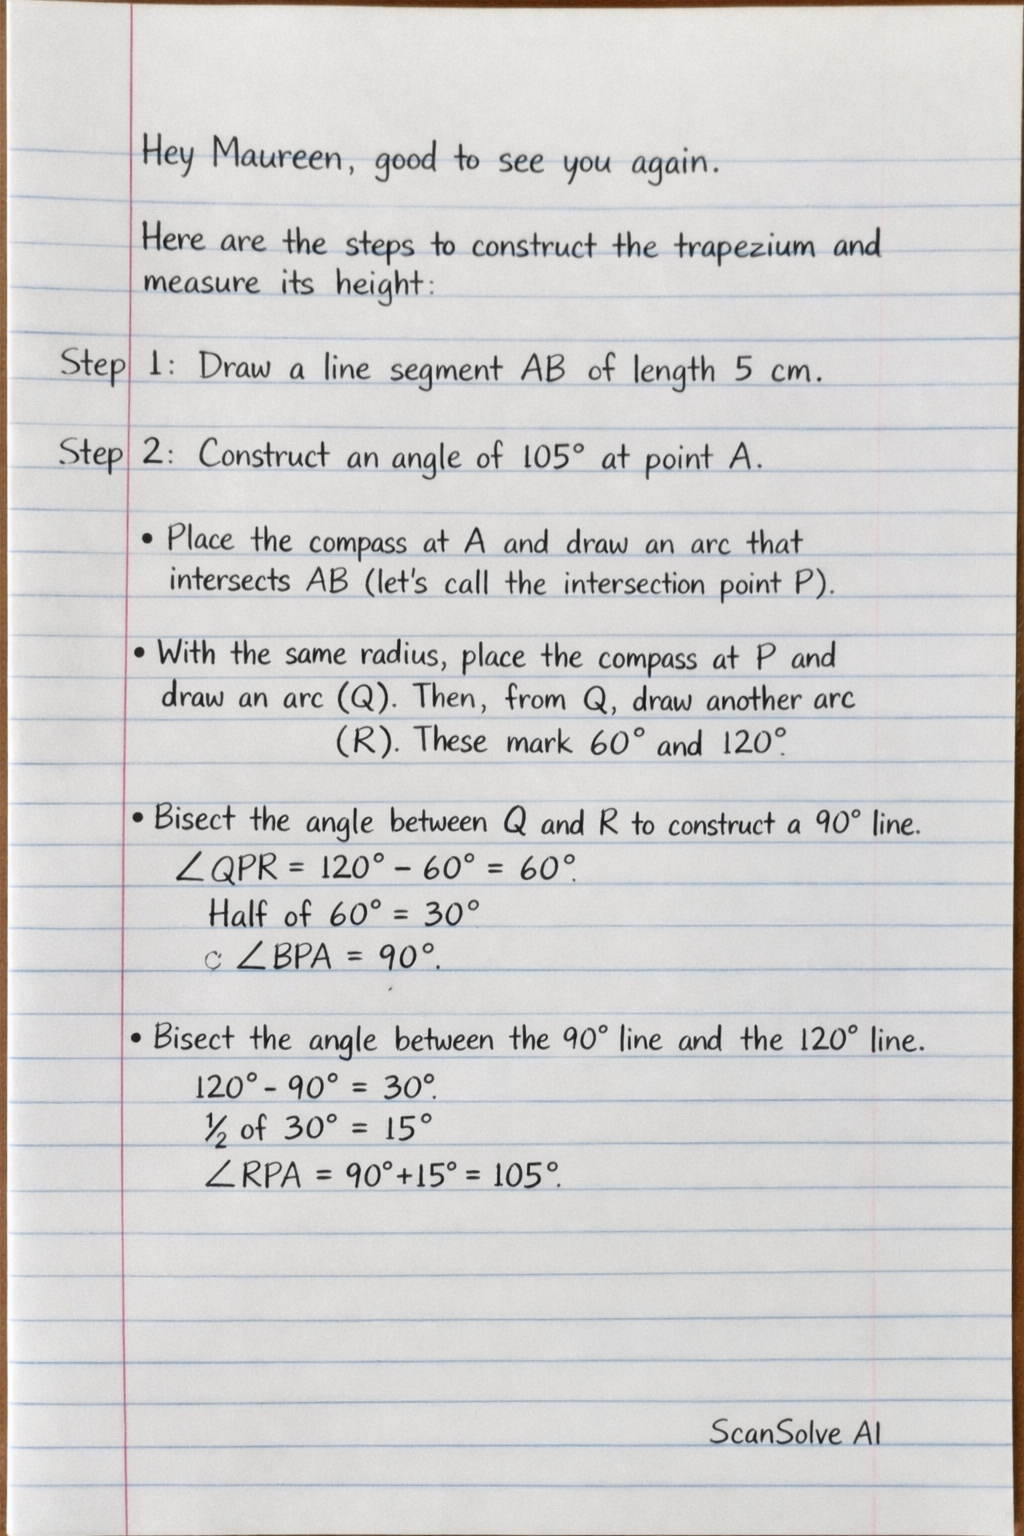 Hey Maureen, good to see you again.
Here are the steps to construct the trapezium and
measure its height:
Step 1: Draw a line segment AB of length 5 cm.
Step 2: Construct an angle of 105° at point A.
• Place the compass at A and draw an arc that
intersects AB (let's call the intersection point P).
• With the same radius, place the compass at P and
draw an arc (Q). Then, from Q, draw another arc
(R). These mark 60° and 120°.
• Bisect the angle between Q and R to construct a 90° line.
∠QPR = 120° - 60° = 60°.
Half of 60° = 30°
c ∠BPA = 90°.
• Bisect the angle between the 90° line and the 120° line.
120° - 90° = 30°.
½ of 30° = 15°
∠RPA = 90°+15° = 105°.
ScanSolve AI